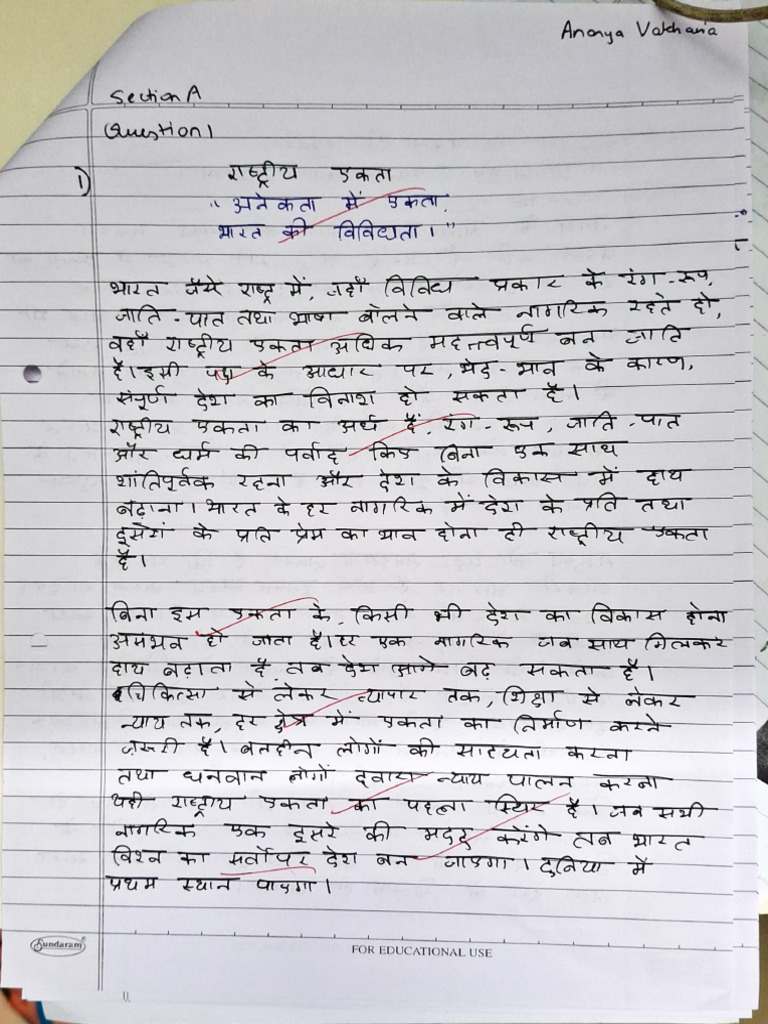 Ananya Vakharia
Section A
Question 1
1) राष्ट्रीय एकता
"अनेकता में एकता,
भारत की विविधता।"
भारत जैसे राष्ट्र में, जहाँ विविध प्रकार के रंग-रूप,
जाति-पात तथा भाषा बोलने वाले नागरिक रहते हो,
वहाँ राष्ट्रीय एकता अधिक महत्त्वपूर्ण बन जाति
है। इसी के आधार पर, भेद-भाव के कारण,
संपूर्ण देश का विनाश हो सकता है।
राष्ट्रीय एकता का अर्थ है, रंग-रूप, जाति-पात
और धर्म की पर्वाद किए बिना एक साथ
शांतिपूर्वक रहना और देश के विकास में हाथ
बढ़ाना। भारत के हर नागरिक में देश के प्रति तथा
दूसरों के प्रति प्रेम का भाव होना ही राष्ट्रीय एकता
है।
बिना इस एकता के, किसी भी देश का विकास होना
असंभव हो जाता है। हर एक नागरिक जब साथ मिलकर
हाथ बढ़ाता है, तब देश आगे बढ़ सकता है।
चिकित्सा से लेकर व्यापार तक, शिक्षा से लेकर
न्याय तक, हर क्षेत्र में एकता का निर्माण करने
ज़रूरी है। बलहीन लोगों की साहयता करना
तथा धनवान लोगों दवारा न्याय पालन करना
यही राष्ट्रीय एकता का पहला स्थिर है। जब सभी
नागरिक एक दूसरे की मदद करेंगे तब भारत
विश्व का सर्वोपर देश बन जाएगा। दुनिया में
प्रथम स्थान पाएगा।
Sundaram
FOR EDUCATIONAL USE